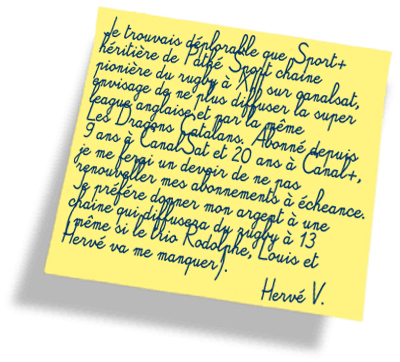 Je trouvais déplorable que Sport+
héritière de Pathé Sport chaine
pionière du rugby à XIII sur canalsat,
envisage de ne plus diffuser la super
league anglaise et par la même
Les Dragons Catalans. Abonné depuis
9 ans à CanalSat et 20 ans à Canal+,
je me ferai un devoir de ne pas
renouveller mes abonnements à écheance.
Je préfére donner mon argent à une
chaine qui diffusera du rugby à 13
(même si le trio Rodolphe, Louis et
Hervé va me manquer).
Hervé V.